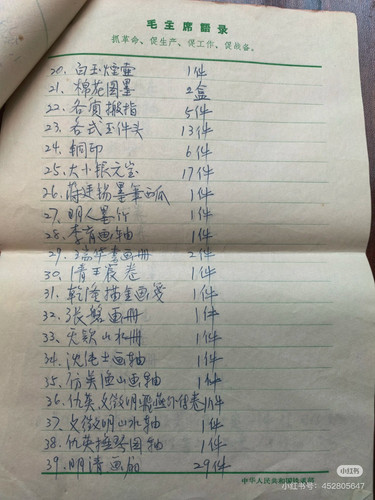 毛主席语录
抓革命、促生产、促工作、促战备。
20. 白玉烟壶 1件
21. 棉花图墨 2盒
22. 各质搬指 5件
23. 各式玉件头 13件
24. 铜印 6件
25. 大小银元宝 17件
26. 蒋廷锡墨笔西瓜 1件
27. 明人墨竹 1件
28. 李育画轴 1件
29. 冯华书画册 2件
30. 清王宸卷 1件
31. 乾隆描金画笺 1件
32. 张磐画册 1件
33. 无款山水册 1件
34. 沈 士画轴 1件
35. 仿吴渔山画轴 1件
36. 仇英文徵明 外传卷 1件
37. 文徵明山水轴 1件
38. 仇英捶琴图轴 1件
39. 明清画扇 29件
中华人民共和国
小红书
小红书号：452805647